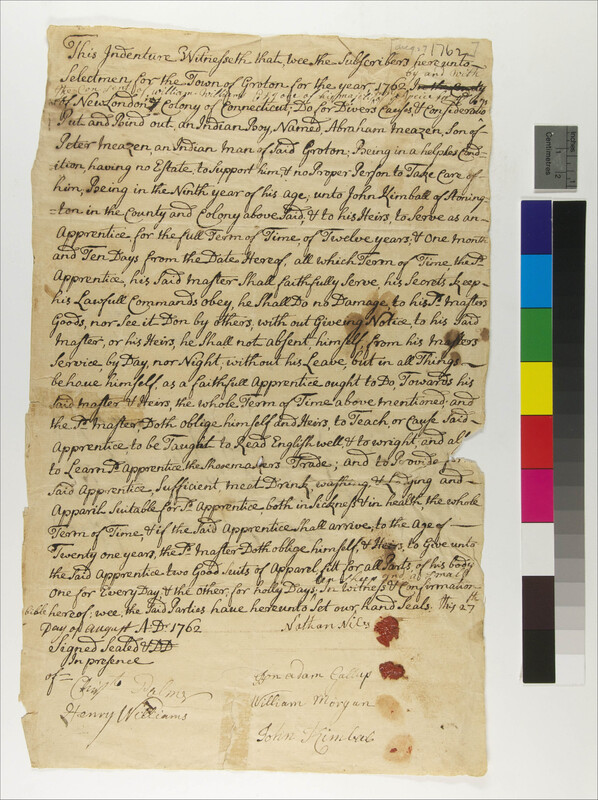 [Aug 27 1762]
This Indenture Witnesseth that, wee the Subscribers here unto
Selectmen, for the Town of Groton for the year 1762 In the County by and with
the Consent of William Williams Esq one of his majesties Justices
of New London & Colony of Connecticut; Do, for Divers Causes, & Consideratio
Put and Bind out, an Indian Boy, Named, Abraham meazen, Son of
Peter meazen, an Indian man of Said Groton; Being in a helpless Cond-
ition, having no Estate, to Support him, & no Proper Person to Take Care of
him; Being in the Ninth year of his Age; unto John Kimball of Stoning-
=ton in the County and Colony above Said, & to his Heirs, to Serve as an
Apprentice for the full Term of Time, of Twelve years, & One month
and Ten Days from the Date Hereof all which Term of Time, the Sd.
Apprentice, his Said master Shall faithfully Serve, his Secrets keep
his Lawfull Commands obey, he Shall Do no Damage, to his Sd. masters
Goods, nor See it Don by others, with out Giveing Notice, to his Said
master, or his Heirs, he Shall not absent, himself, from his masters
Service by Day, nor Night, without his Leave, but in all Things
behave himself, as a faithfull Apprentice ought to Do Towards his
Said master & Heirs, the whole Term of Time above mentioned; and
the Sd. master Doth oblige himself and Heirs, to Teach, or Cause Said
Apprentice to be Taught to Read English well & to wright, and all
to Learn Sd. apprentice the Shoemakers Trade; and to Provide for
Said Apprentice, Sufficient meat Drink, washing, & Lodging and
Apparil Suitable for Sd. Apprentice, both in Sickness & in health the whole
Term of Time, & if the Said Apprentice Shall arrive, to the Age of
Twenty one years, the Sd. master Doth oblige himself, & Heirs, to Give unto
the Said Apprentice two Good Suits of Apparel fitt for all Parts, of his body
one for Every Day & the other, for holly Days; In witness & Confirmation
bible hereof; wee, the Said Parties have hereunto Set our hand Seals, this 27th
Day of August AD: 1762
Signed Sealed & DD
In presence
of =
Nathan Niles
Henry Williams
William Morgan
John Kimbal
Inches
Centimetres